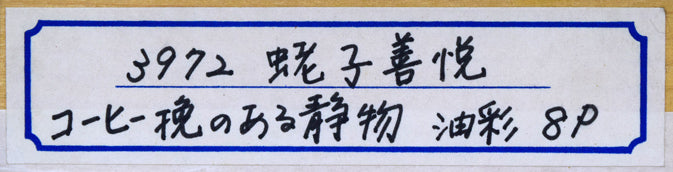 3972 蛯子善悦
コーヒー挽のある静物 油彩 8P